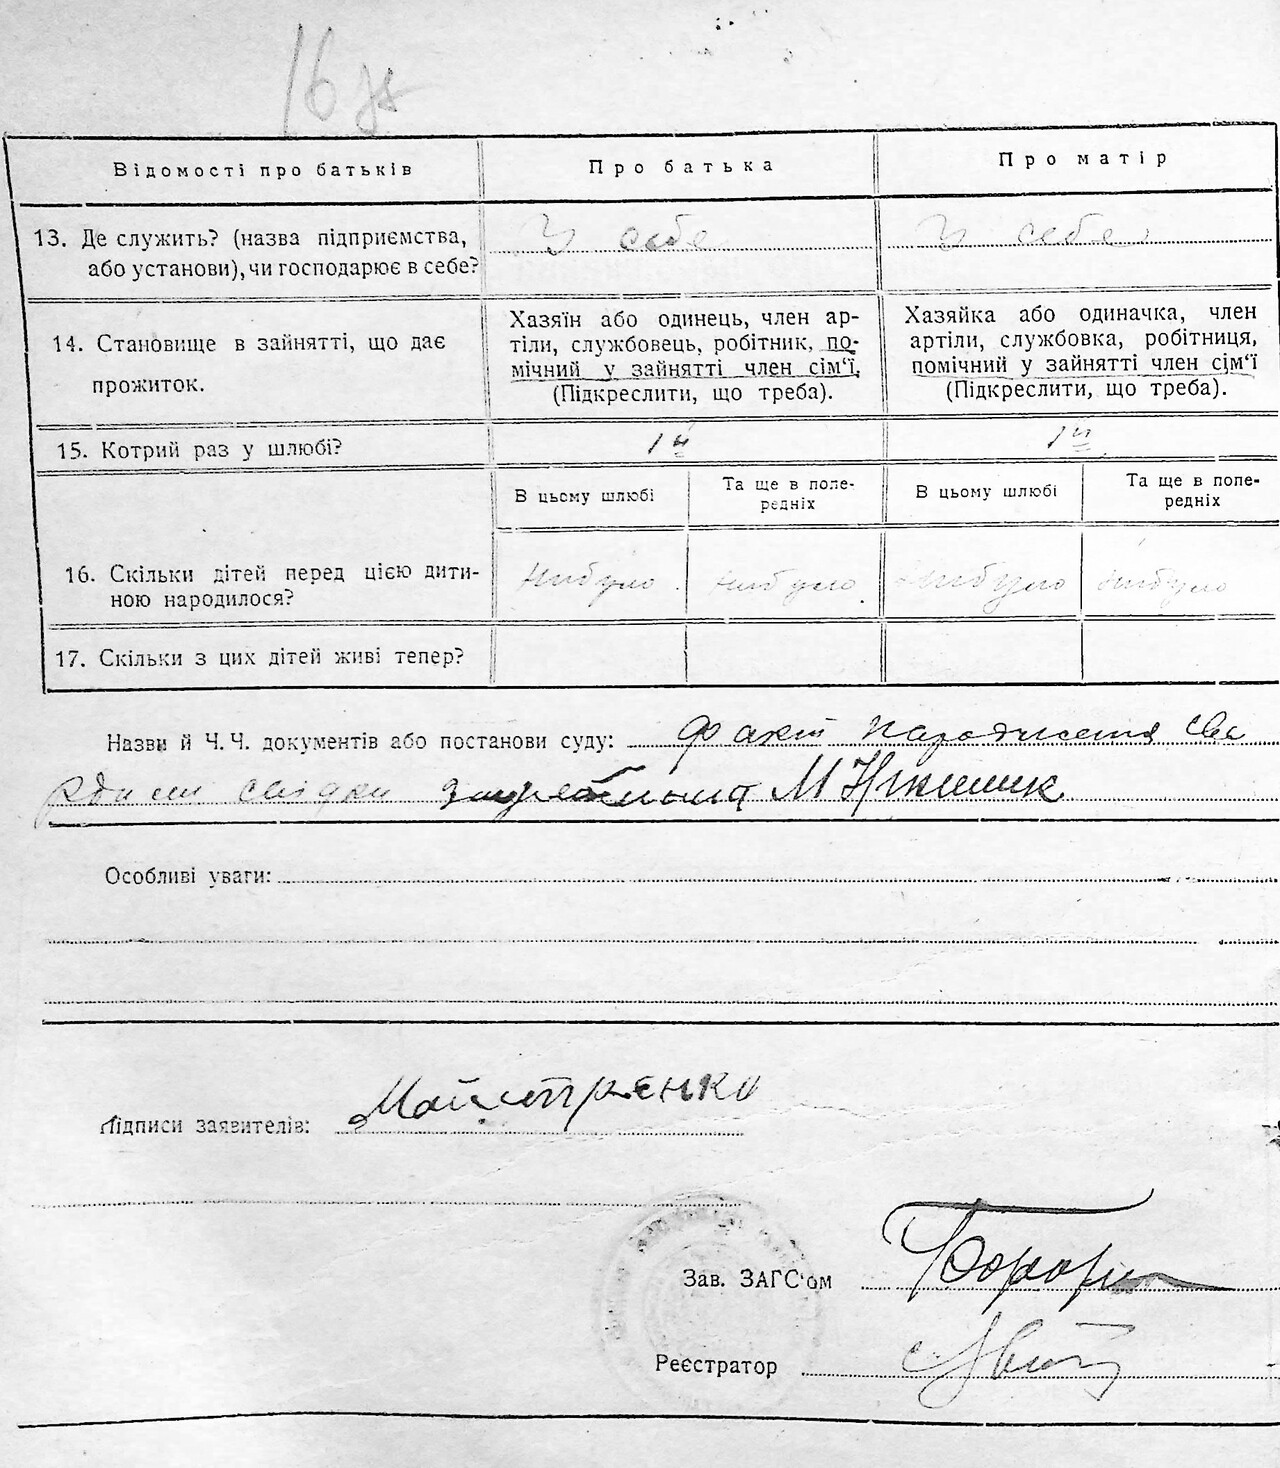 16
Відомості про батьків
Про батька
Про матір
13. Де служить? (назва підприємства,
або установи), чи господарює в себе?
У себе
У себе
14. Становище в зайнятті, що дає
прожиток.
Хазяїн або одинець, член ар-
тіли, службовець, робітник, по-
мічний у зайнятті член сім'ї.
(Підкреслити, що треба).
Хазяйка або одиначка, член
артіли, службовка, робітниця,
помічний у зайнятті член сім'ї
(Підкреслити, що треба).
15. Котрий раз у шлюбі?
1й
1й
В цьому шлюбі
Та ще в попе-
редніх
В цьому шлюбі
Та ще в попе-
редніх
16. Скільки дітей перед цією дити-
ною народилося?
нибуло
нибуло
нибуло
нибуло
17. Скільки з цих дітей живі тепер?
Назви й Ч. Ч. документів або постанови суду: факт народження
свідки М
Особливі уваги:
Підписи заявителів: Майстренко
Зав. ЗАГС'ом
Реєстратор